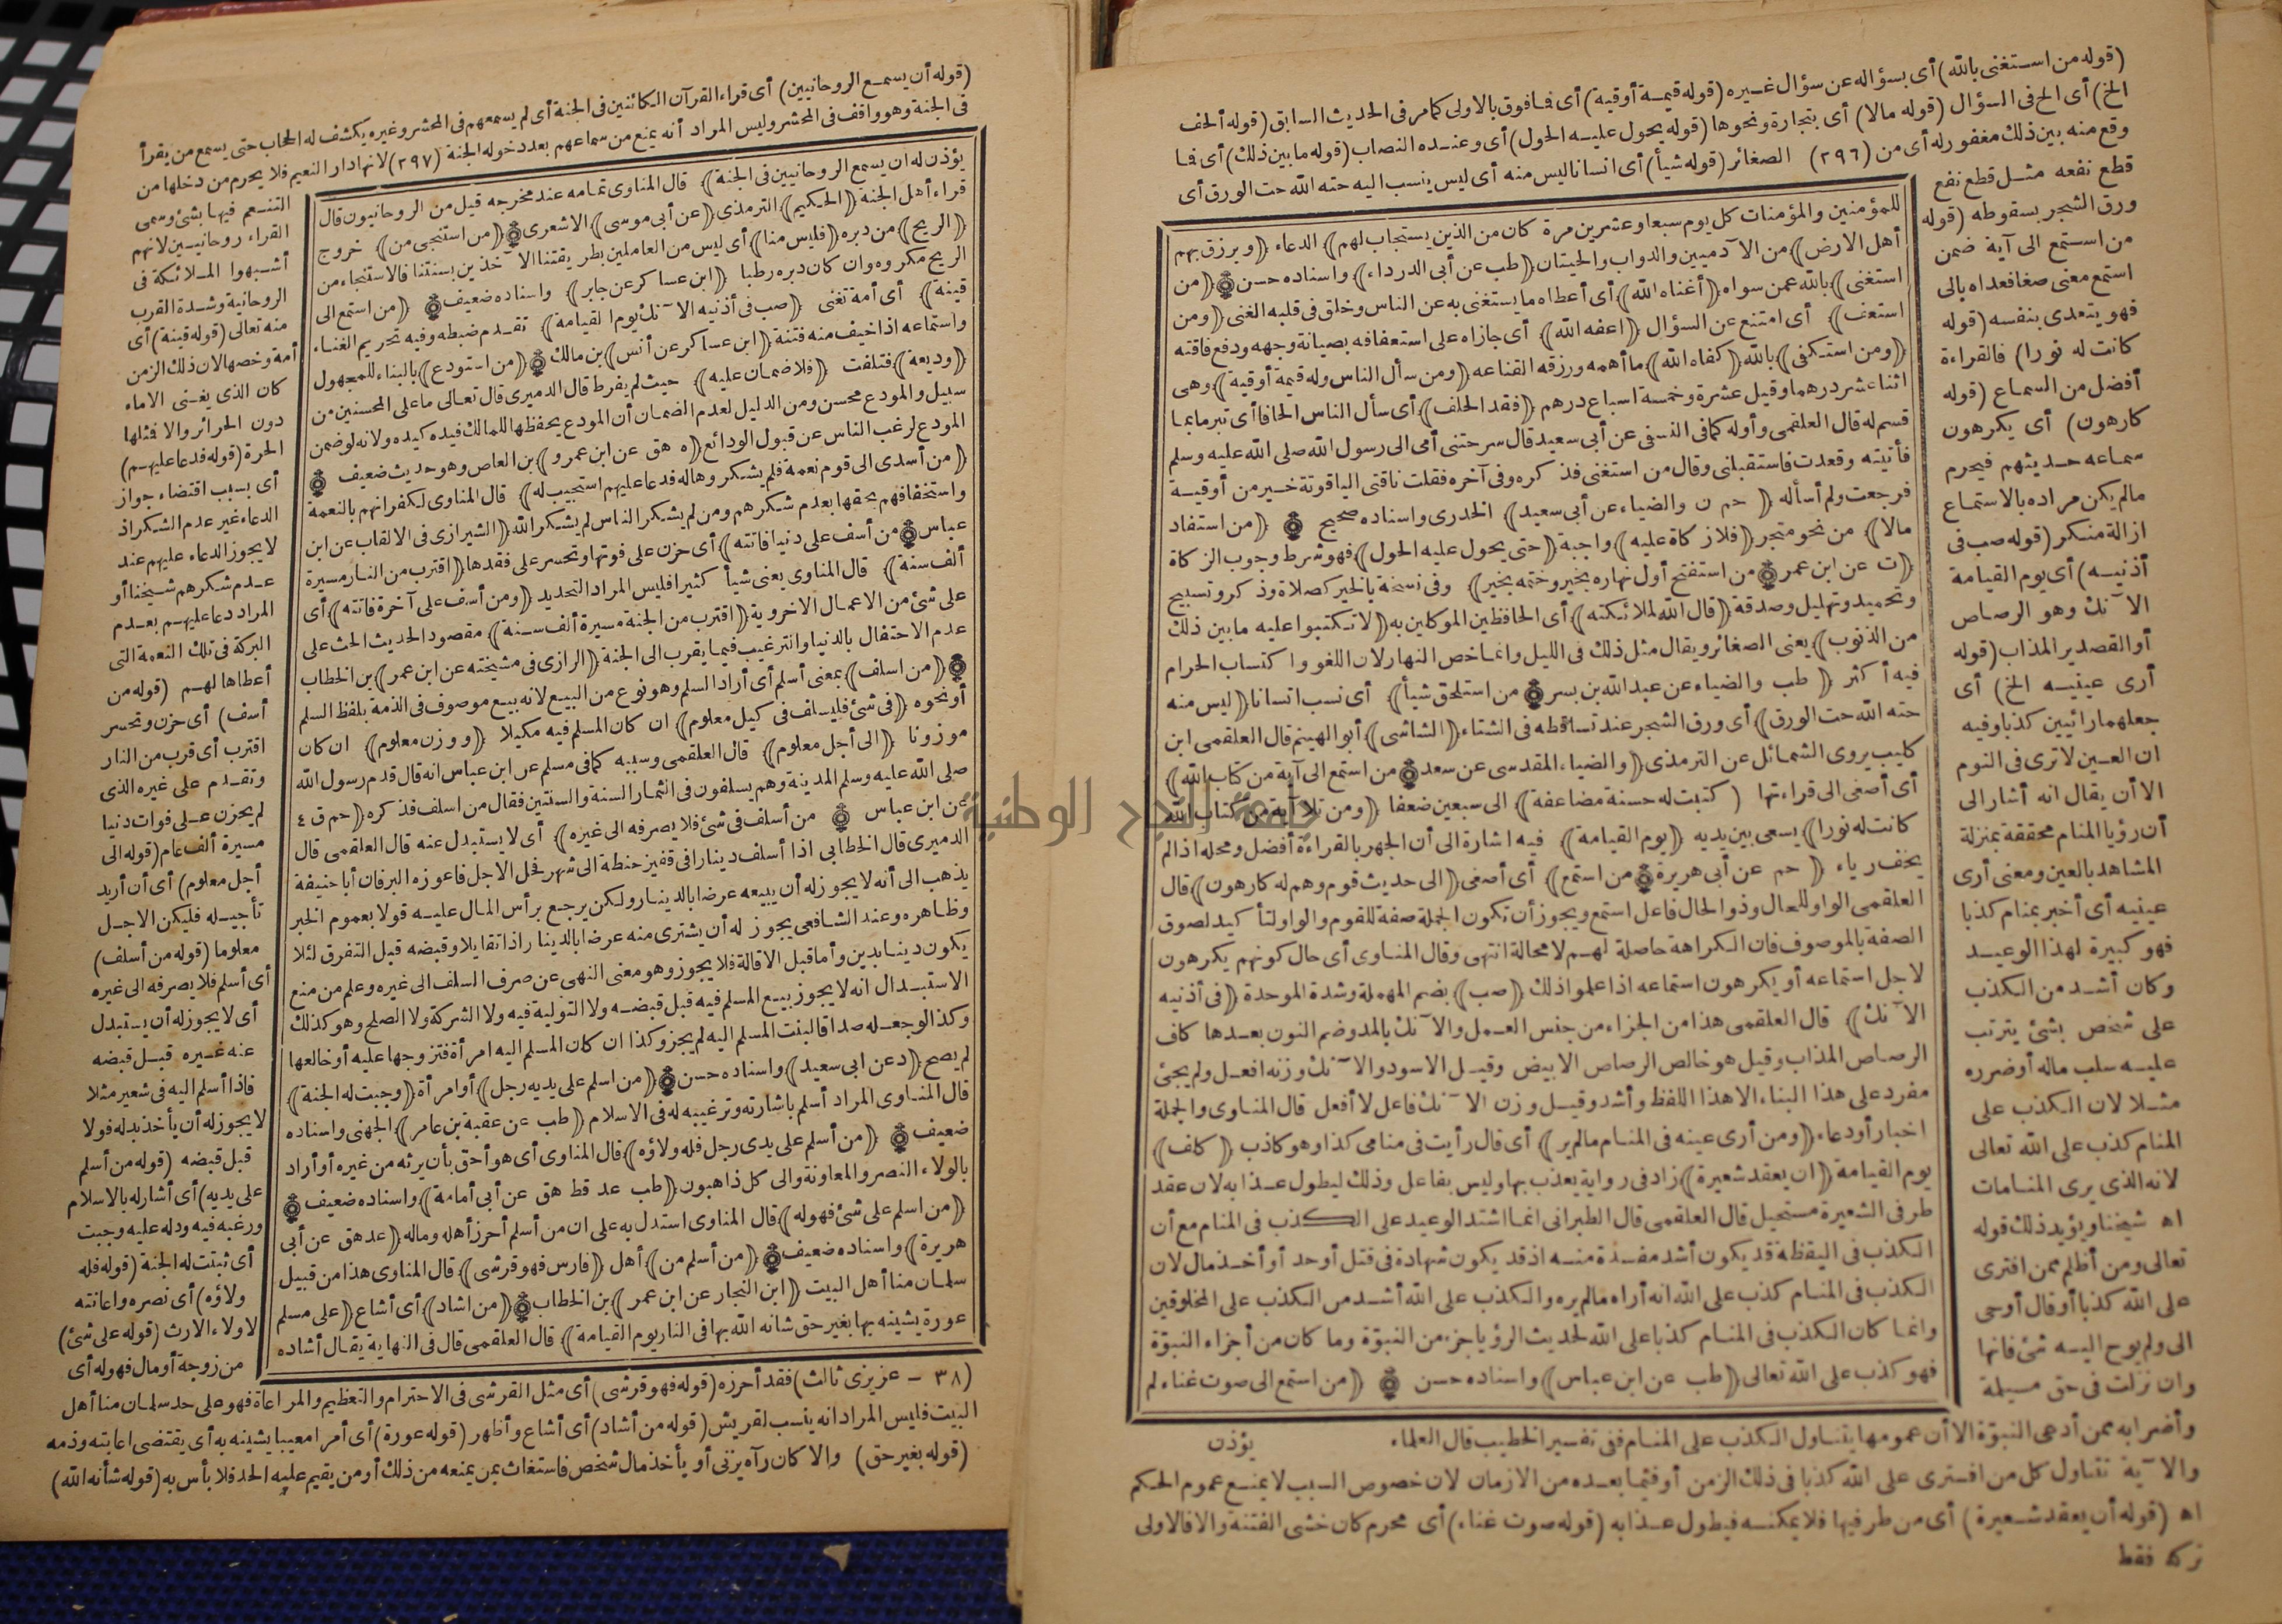 (قوله من استغنى بالله) أى بسؤاله عن سؤال غيره (قوله قيمة أوقية) أى فما فوق بالاولى كما مر فى الحديث السابق (قوله ألحف
الخ) أى الح فى السؤال (قوله مالا) أى بتجارة ونحوها (قوله يحول عليه الحول) أى وعنده النصاب (قوله ما بين ذلك) أى فما
وقع منه بين ذلك مغفور له أى من (٢٩٦) الصغائر (قوله شيأ) أى انسانا ليس منه أى ليس ينسب اليه حته الله حت الورق أى
قطع نفعه مثل قطع نفع
ورق الشجر بسقوطه (قوله
من استمع الى آية ضمن
استمع معنى صغا فعداه بالى
فهو يتعدى بنفسه (قوله
كانت له نورا) فالقراءة
أفضل من السماع (قوله
كارهون) أى يكرهون
سماعه حديثهم فيحرم
مالم يكن مراده بالاستماع
ازالة منكر (قوله صب فى
أذنيه) أى يوم القيامة
الآنك وهو الرصاص
أو القصدير المذاب (قوله
أرى عينيه الخ) أى
جعلهما رائيين كذبا وفيه
ان العين لا ترى فى النوم
الا أن يقال انه أشار الى
أن رؤيا المنام محققة بمنزلة
المشاهد بالعين ومعنى أرى
عينيه أى أخبر بمنام كذبا
فهو كبيرة لهذا الوعيد
وكان أشد من الكذب
على شخص بشئ يترتب
عليه سلب ماله أو ضرره
مثلا لان الكذب على
المنام كذب على الله تعالى
لانه الذى يرى المنامات
اه شيخنا ويؤيد ذلك قوله
تعالى ومن أظلم ممن افترى
على الله كذبا أو قال أوحى
الى ولم يوح اليه شئ فانها
وان نزلت فى حق مسيلمة
للمؤمنين والمؤمنات كل يوم سبعا وعشرين مرة كان من الذين يستجاب لهم) الدعاء (ويرزق بهم
أهل الارض) من الآدميين والدواب والحيتان (طب عن أبى الدرداء) واسناده حسن (من
استغنى) بالله عمن سواه (أغناه الله) أى أعطاه ما يستغنى به عن الناس وخلق فى قلبه الغنى (ومن
استعف) أى امتنع عن السؤال (اعفه الله) أى جازاه على استعفافه بصيانة وجهه ودفع فاقته
(ومن استكفى) بالله (كفاه الله) ما أهمه ورزقه القناعه (ومن سأل الناس وله قيمة أوقية) وهى
اثنا عشر درهما وقيل عشرة وخمسة اسباع درهم (فقد الحف) أى سأل الناس الحافا أى تبرما بما
قسم له قال العلقمى وأوله كما فى النسفى عن أبى سعيد قال سرحتنى أمى الى رسول الله صلى الله عليه وسلم
فأتيته وقعدت فاستقبلنى وقال من استغنى فذكره وفى آخره فقلت ناقتى الياقوتة خير من أوقية
فرجعت ولم أسأله (حم ن والضياء عن أبى سعيد) الخدرى واسناده صحيح (من استفاد
مالا) من نحو متجر (فلا زكاة عليه) واجبة (حتى يحول عليه الحول) فهو شرط وجوب الزكاة
(ت عن ابن عمر من استفتح أول نهاره بخير وختمه بخير) وفى نسخة بالخير كصلاة وذكر وتسبيح
وتحميد وتهليل وصدقة (قال الله لملائكته) أى الحافظين الموكلين به (لا تكتبوا عليه ما بين ذلك
من الذنوب) يعنى الصغائر ويقال مثل ذلك فى الليل وانما خص النهار لان اللغو واكتساب الحرام
فيه أكثر (طب والضياء عن عبد الله بن بسر من استلحق شيأ) أى نسب انسانا (ليس منه
حته الله حت الورق) أى ورق الشجر عند تساقطه فى الشتاء (الشاشى) أبو الهيثم قال العلقمى ابن
كليب يروى الشمائل عن الترمذى (والضياء المقدسى عن سعد من استمع الى آية من كتاب الله)
أى أصغى الى قراءتها (كتبت له حسنة مضاعفة) الى سبعين ضعفا (ومن تلا آية من كتاب الله
كانت له نورا) يسعى بين يديه (يوم القيامة) فيه اشارة الى أن الجهر بالقراءة أفضل ومحله اذا لم
يخف رياء (حم عن أبى هريرة من استمع) أى أصغى (الى حديث قوم وهم له كارهون) قال
العلقمى الواو للحال وذو الحال فاعل استمع ويجوز أن تكون الجملة صفة للقوم والواو لتأكيد لصوق
الصفة بالموصوف فان الكراهة حاصلة لهم لا محالة انتهى وقال المناوى أى حال كونهم يكرهون
لاجل استماعه أو يكرهون استماعه اذا علموا ذلك (صب) بضم المهملة وشدة الموحدة (فى أذنيه
الآنك) قال العلقمى هذا من الجزاء من جنس العمل والآنك بالمد وضم النون بعدها كاف
الرصاص المذاب وقيل هو خالص الرصاص الابيض وقيل الاسود والآنك وزنه افعل ولم يجئ
مفرد على هذا البناء الا هذا اللفظ وأشد وقيل وزن الآنك فاعل لا أفعل قال المناوى والجملة
اخبار أو دعاء (ومن أرى عينه فى المنام مالم ير) أى قال رأيت فى منامى كذا وهو كاذب (كلف)
يوم القيامة (ان يعقد شعيرة) زاد فى رواية يعذب بها وليس بفاعل وذلك ليطول عذابه لان عقد
طرفى الشعيرة مستحيل قال العلقمى قال الطبرانى انما اشتد الوعيد على الكذب فى المنام مع أن
الكذب فى اليقظة قد يكون أشد مفسدة منه اذ قد يكون شهادة فى قتل أو حد أو أخذ مال لان
الكذب فى المنام كذب على الله انه أراه مالم يره والكذب على الله أشد من الكذب على المخلوقين
وانما كان الكذب فى المنام كذبا على الله لحديث الرؤيا جزء من النبوّة وما كان من أجزاء النبوّة
فهو كذب على الله تعالى (طب عن ابن عباس) واسناده حسن (من استمع الى صوت غناء لم
وأضرابه ممن أدعى النبوّة الا أن عمومها يتناول الكذب على المنام ففى تفسير الخطيب قال العلماء
يؤذن
والآية تتناول كل من افترى على الله كذبا فى ذلك الزمن أو فيما بعده من الازمان لان خصوص السبب لا يمنع عموم الحكم
اه (قوله أن يعقد شعيرة) أى من طرفيها فلا يمكنه فيطول عذابه (قوله صوت غناء) أى محرم كأن خشى الفتنة والا فالاولى
تركه فقط
(قوله أن يسمع الروحانيين) أى قراء القرآن الكائنين فى الجنة أى لم يسمعهم فى المحشر وغيره يكشف له الحجاب حتى يسمع من يقرأ
فى الجنة وهو واقف فى المحشر وليس المراد أنه يمنع من سماعهم بعد دخوله الجنة (٢٩٧) لانها دار النعيم فلا يحرم من دخلها من
التنعم فيها بشئ وسمى
القراء روحانيين لانهم
أشبهوا الملائكة فى
الروحانية وشدة القرب
منه تعالى (قوله قينة) أى
أمة وخصها لان ذلك الزمن
كان الذى يغنى الاماء
دون الحرائر والا فمثلها
الحرة (قوله فدعا عليهم)
أى بسبب اقتضاء جواز
الدعاء غير عدم الشكر اذ
لا يجوز الدعاء عليهم عند
عدم شكرهم شيخنا أو
المراد دعا عليهم بعدم
البركة فى تلك النعمة التى
أعطاها لهم (قوله من
أسف) أى حزن وتحسر
اقترب أى قرب من النار
وتقدم على غيره الذى
لم يحزن على فوات دنيا
مسيرة ألف عام (قوله الى
أجل معلوم) أى أن أريد
تأجيله فليكن الاجل
معلوما (قوله من أسلف)
أى أسلم فلا يصرفه الى غيره
أى لا يجوز له أن يستبدل
عنه غيره قبل قبضه
فاذا أسلم اليه فى شعير مثلا
لا يجوز له أن يأخذ بدله فولا
قبل قبضه (قوله من أسلم
على يديه) أى أشار له بالاسلام
ورغبه فيه ودله عليه وجبت
أى ثبتت له الجنة (قوله فله
ولاؤه) أى نصره واعانته
لا ولاء الارث (قوله على شئ)
من زوجة أو مال فهو له أى
يؤذن له ان يسمع الروحانيين فى الجنة) قال المناوى تمامه عند مخرجه قيل من الروحانيون قال
قراء أهل الجنة (الحكيم) الترمذى (عن أبى موسى) الاشعرى (من استنجى من) خروج
(الريح) من دبره (فليس منا) أى ليس من العاملين بطريقتنا الآخذين بسنتنا فالاستنجاء من
الريح مكروه وان كان دبره رطبا (ابن عساكر عن جابر) واسناده ضعيف (من استمع الى
قينة) أى أمة تغنى (صب فى أذنيه الآنك يوم القيامة) تقدم ضبطه وفيه تحريم الغناء
واستماعه اذا خيف منه فتنة (ابن عساكر عن أنس) بن مالك (من استودع) بالبناء للمجهول
(وديعة) فتلفت (فلا ضمان عليه) حيث لم يفرط قال الدميرى قال تعالى ما على المحسنين من
سبيل والمودع محسن ومن الدليل لعدم الضمان أن المودع يحفظها للمالك فيده كيده ولانه لو ضمن
المودع لرغب الناس عن قبول الودائع (ه هق عن ابن عمرو) بن العاص وهو حديث ضعيف
(من أسدى الى قوم نعمة فلم يشكروها له فدعا عليهم استجيب له) قال المناوى لكفرانهم بالنعمة
واستخفافهم بحقها بعدم شكرهم ومن لم يشكر الناس لم يشكر الله (الشيرازى فى الالقاب عن ابن
عباس من أسف على دنيا فاتته) أى حزن على فوتها وتحسر على فقدها (اقترب من النار مسيرة
ألف سنة) قال المناوى يعنى شيأ كثيرا فليس المراد التحديد (ومن أسف على آخرة فاتته) أى
على شئ من الاعمال الاخروية (اقترب من الجنة مسيرة ألف سنة) مقصود الحديث الحث على
عدم الاحتفال بالدنيا والترغيب فيما يقرب الى الجنة (الرازى فى مشيخته عن ابن عمر) بن الخطاب
(من اسلف) بمعنى أسلم أى أراد السلم وهو نوع من البيع لانه بيع موصوف فى الذمة بلفظ السلم
أو نحوه (فى شئ فليسلف فى كيل معلوم) ان كان المسلم فيه مكيلا (ووزن معلوم) ان كان
موزونا (الى أجل معلوم) قال العلقمى وسببه كما فى مسلم عن ابن عباس انه قال قدم رسول الله
صلى الله عليه وسلم المدينة وهم يسلفون فى الثمار السنة والسنتين فقال من اسلف فذكره (حم ق ٤
عن ابن عباس من أسلف فى شئ فلا يصرفه الى غيره) أى لا يستبدل عنه قال العلقمى قال
الدميرى قال الخطابى اذا أسلف دينارا فى قفيز حنطة الى شهر فحل الاجل فاعوزه البر فان أبا حنيفة
يذهب الى أنه لا يجوز له أن يبيعه عرضا بالدينار ولكن يرجع برأس المال عليه قولا بعموم الخبر
وظاهره وعند الشافعى يجوز له أن يشترى منه عرضا بالدينار اذا تقايلا وقبضه قبل التفرق لئلا
يكون دينا بدين وأما قبل الاقالة فلا يجوز وهو معنى النهى عن صرف السلف الى غيره وعلم من منع
الاستبدال انه لا يجوز بيع المسلم فيه قبل قبضه ولا التولية فيه ولا الشركة ولا الصلح وهو كذلك
وكذا لو جعله صداقا لبنت المسلم اليه لم يجز وكذا ان كان المسلم اليه امرأة فتزوجها عليه أو خالعها
لم يصح (د عن ابى سعيد) واسناده حسن (من اسلم على يديه رجل) أو امرأة (وجبت له الجنة)
قال المناوى المراد أسلم باشارته وترغيبه له فى الاسلام (طب عن عقبة بن عامر) الجهنى واسناده
ضعيف (من أسلم على يدى رجل فله ولاؤه) قال المناوى أى هو أحق بأن يرثه من غيره أو أراد
بالولاء النصر والمعاونة والى كل ذاهبون (طب عد قط هق عن أبى أمامة) واسناده ضعيف
(من اسلم على شئ فهو له) قال المناوى استدل به على ان من أسلم أحرز أهله وماله (عد هق عن أبى
هريرة) واسناده ضعيف (من أسلم من) أهل (فارس فهو قرشى) قال المناوى هذا من قبيل
سلمان منا أهل البيت (ابن النجار عن ابن عمر) بن الخطاب (من اشاد) أى أشاع (على مسلم
عورة يشينه بها بغير حق شانه الله بها فى النار يوم القيامة) قال العلقمى قال فى النهاية يقال أشاده
(٣٨ - عزيزى ثالث) فقد أحرزه (قوله فهو قرشى) أى مثل القرشى فى الاحترام والتعظيم والمراعاة فهو على حد سلمان منا أهل
البيت فليس المراد انه ينسب لقريش (قوله من أشاد) أى أشاع وأظهر (قوله عورة) أى أمرا معيبا يشينه به أى يقتضى اعابته وذمه
(قوله بغير حق) والا كأن رآه يزنى أو يأخذ مال شخص فاستغاث بمن يمنعه من ذلك أو من يقيم عليه الحد فلا بأس به (قوله شأنه الله)
جامعة النجاح الوطنية